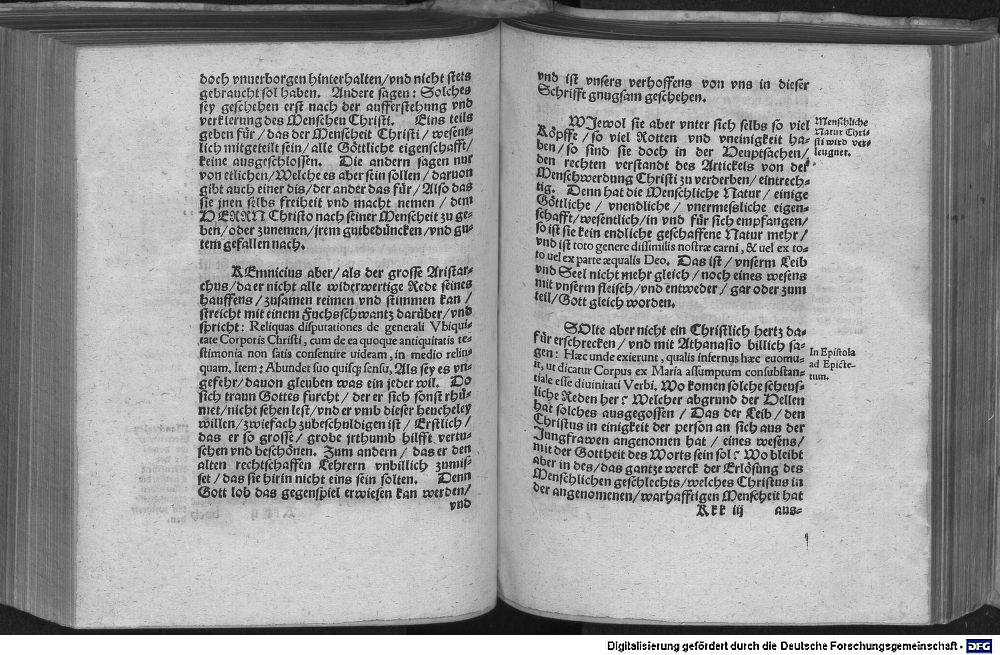 doch vnuerborgen hinterhalten/vnd nicht stets
gebraucht sol haben. Andere sagen: Solches
sey geschehen erst nach der aufferstehung vnd
verklerung des Menscheu Christi. Eins teils
geben für/das der Menscheit Christi/wesent-
lich mitgeteilt sein/alle Göttliche eigenschafft/
keine ausgeschlossen. Die andern sagen nur
von etlichen/Welche es aber sein sollen/daruon
gibt auch einer dis/der ander das für/Also das
sie jnen selbs freiheit vnd macht nemen/dem
HERRN Christo nach seiner Menscheit zu ge-
ben/oder zunemen/jrem gutbedüncken/vnd gu-
tem gefallen nach.
KEmnicius aber/als der grosse Aristar-
chus/da er nicht alle widerwertige Rede seines
hauffens/zusamen reimen vnd stimmen kan/
streicht mit einem Fuchsschwantz darüber/vnd
spricht: Reliquas disputationes de generali Vbiqui-
tate Corporis Christi, cum de ea quoque antiquitatis te-
stimonia non satis consentire uideam, in medio relin-
quam. Item: Abundet suo quisq; sensu, Als sey es vn-
gefehr/dauon gleuben was ein jeder wil. Do
sich traun Gottes furcht/der er sich sonst rhü-
met/nicht sehen lest/vnd er vmb dieser heucheley
willen/zwiefach zubeschuldigen ist/Erstlich/
das er so grosse/grobe jrthumb hilfft vertu-
schen vnd beschönen. Zum andern/das er den
alten rechtschaffen Lehrern vnbillich zumis-
set/das sie hirin nicht eins sein solten. Denn
Gott lob das gegenspiel erwiesen kan werden/
vnd
vnd ist vnsers verhoffens von vns in dieser
Schrifft gnugsam geschehen.
WJewol sie aber vnter sich selbs so viel
Köpffe/so viel Rotten vnd vneinigkeit ha-
ben/so sind sie doch in der Heuptsachen/
den rechten verstandt des Artickels von der
Menschwerdung Christi zu verderben/eintrech-
tig. Denn hat die Menschliche Natur/einige
Göttliche/vnendliche/vnermessliche eigen-
schafft/wesentlich/in vnd für sich empfangen/
so ist sie kein endliche geschaffene Natur mehr/
vnd ist toto genere dissimilis nostræ carni, & uel ex to-
to uel ex parte æqualis Deo. Das ist/vnserm Leib
vnd Seel nicht mehr gleich/noch eines wesens
mit vnserm fleisch/vnd entweder/gar oder zum
teil/Gott gleich worden.
Menschliche
Natur Chri-
sti wird ver-
leugnet.
SOlte aber nicht ein Christlich hertz da-
für erschrecken/vnd mit Athanasio billich sa-
gen: Hæc unde exierunt, qualis infernus hæc euomu-
it, ut dicatur Corpus ex Maria assumptum consubstan-
tiale esse diuinitati Verbi. Wo komen solche scheus-
liche Reden her? Welcher abgrund der Hellen
hat solches ausgegossen/Das der Leib/den
Christus in einigkeit der person an sich aus der
Jungfrawen angenomen hat/eines wesens/
mit der Gottheit des Worts sein sol? Wo bleibt
aber in des/das gantze werck der Erlösung des
Menschlichen geschlechts/welches Christus in
der angenomenen/warhafftigen Menscheit hat
In Epistola
ad Epicte-
tum.
Kkk iij aus-
Digitalisierung gefördert durch die Deutsche Forschungsgemeinschaft - DFG